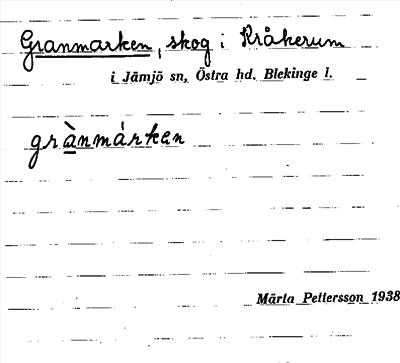 Granmarken, skog i Kråkerum
i Jämjö sn, Östra hd. Blekinge l.
grànmárken
Märta Pettersson 1938